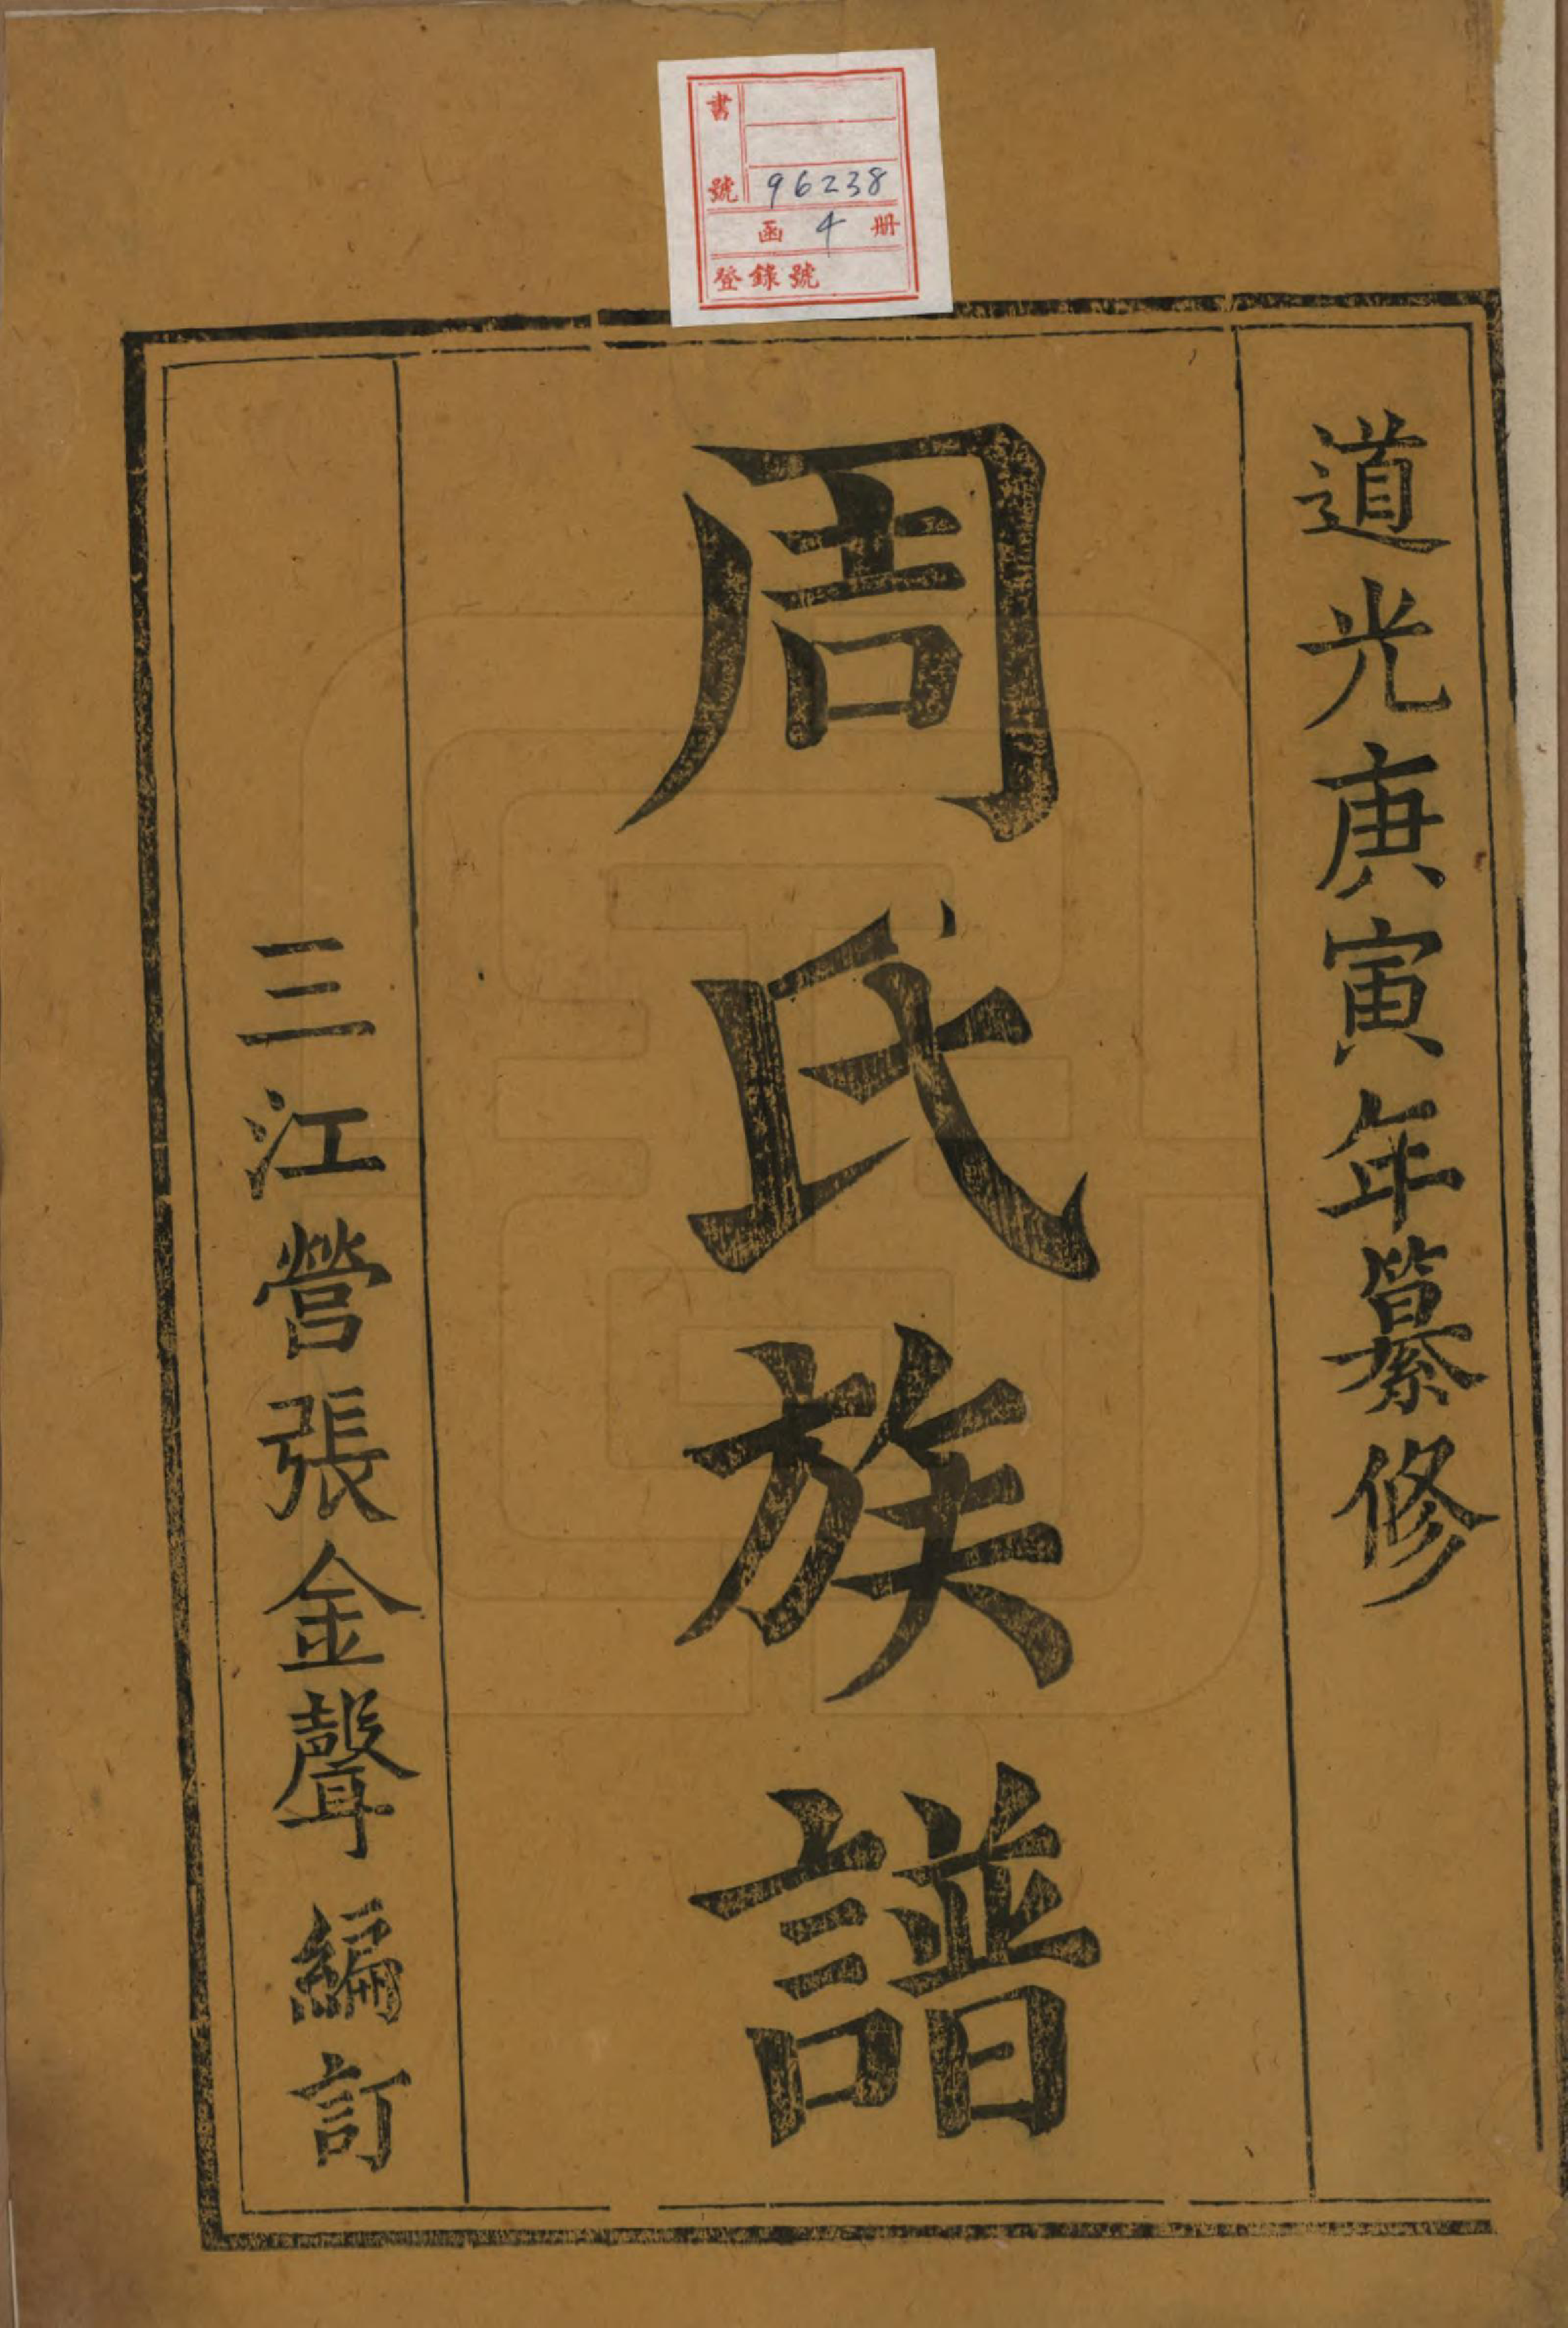 書號 96238
函 4 册
登錄號
道光庚寅年纂修
周氏族譜
三江營張金聲編訂